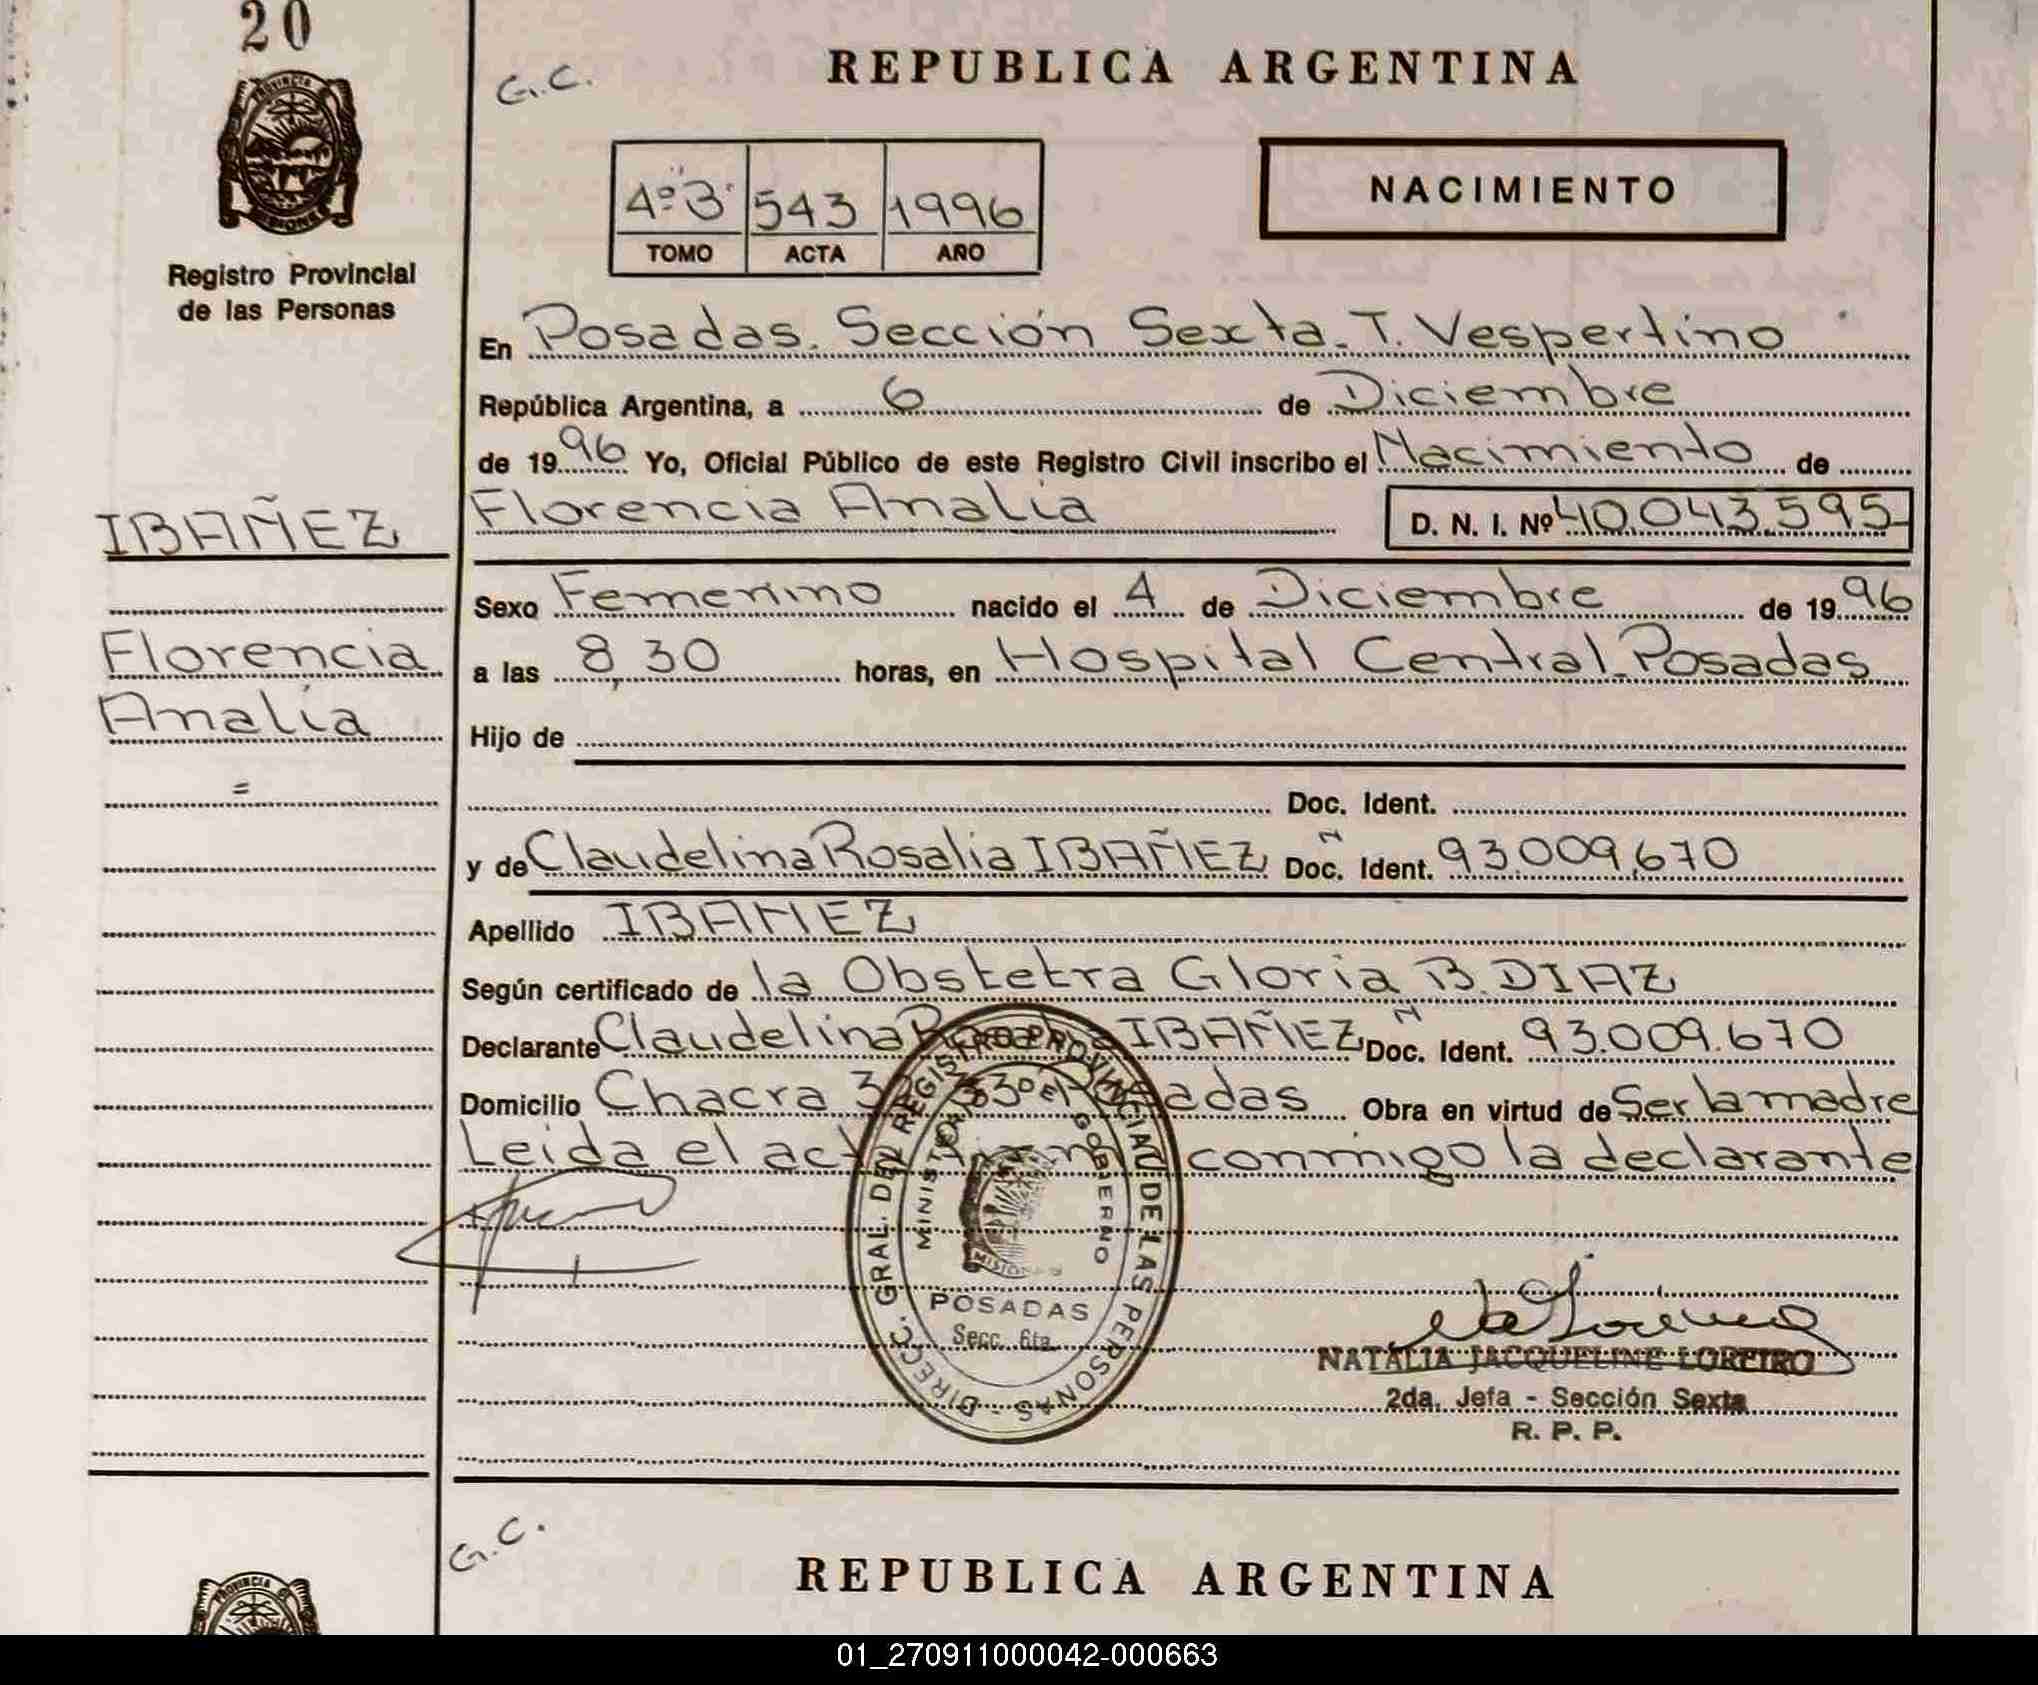 20
G.C.
REPUBLICA ARGENTINA
PROVINCIA
MISIONES
Registro Provincial
de las Personas
4º"B" 543 1996
TOMO ACTA AÑO
NACIMIENTO
En Posadas. Sección Sexta. T. Vespertino
República Argentina, a 6 de Diciembre
de 1996 Yo, Oficial Público de este Registro Civil inscribo el Nacimiento de
IBAÑEZ
Florencia Analía D. N. I. Nº 40.043.595
Sexo Femenino nacido el 4 de Diciembre de 1996
Florencia
a las 8,30 horas, en Hospital Central_Posadas
Analía
Hijo de
=
Doc. Ident.
y de Claudelina Rosalia IBAÑEZ Doc. Ñ Ident. 93.009.670
Apellido IBAÑEZ
Según certificado de la Obstetra Gloria B. DIAZ
Declarante Claudelina Rosalia IBAÑEZ Doc. Ñ Ident. 93.009.670
Domicilio Chacra Posadas Obra en virtud de Ser la madre
Leida el acta firma conmigo la declarante
DIRECC. GRAL. DEL REGISTRO PROVINCIAL DE LAS PERSONAS -
MINISTERIO DE GOBIERNO
MISIONES
POSADAS
Secc. 6ta.
NATALIA JACQUELINE LOREIRO
2da. Jefa - Sección Sexta
R. P. P.
G.C.
REPUBLICA ARGENTINA
PROVINCIA D
01_270911000042-000663